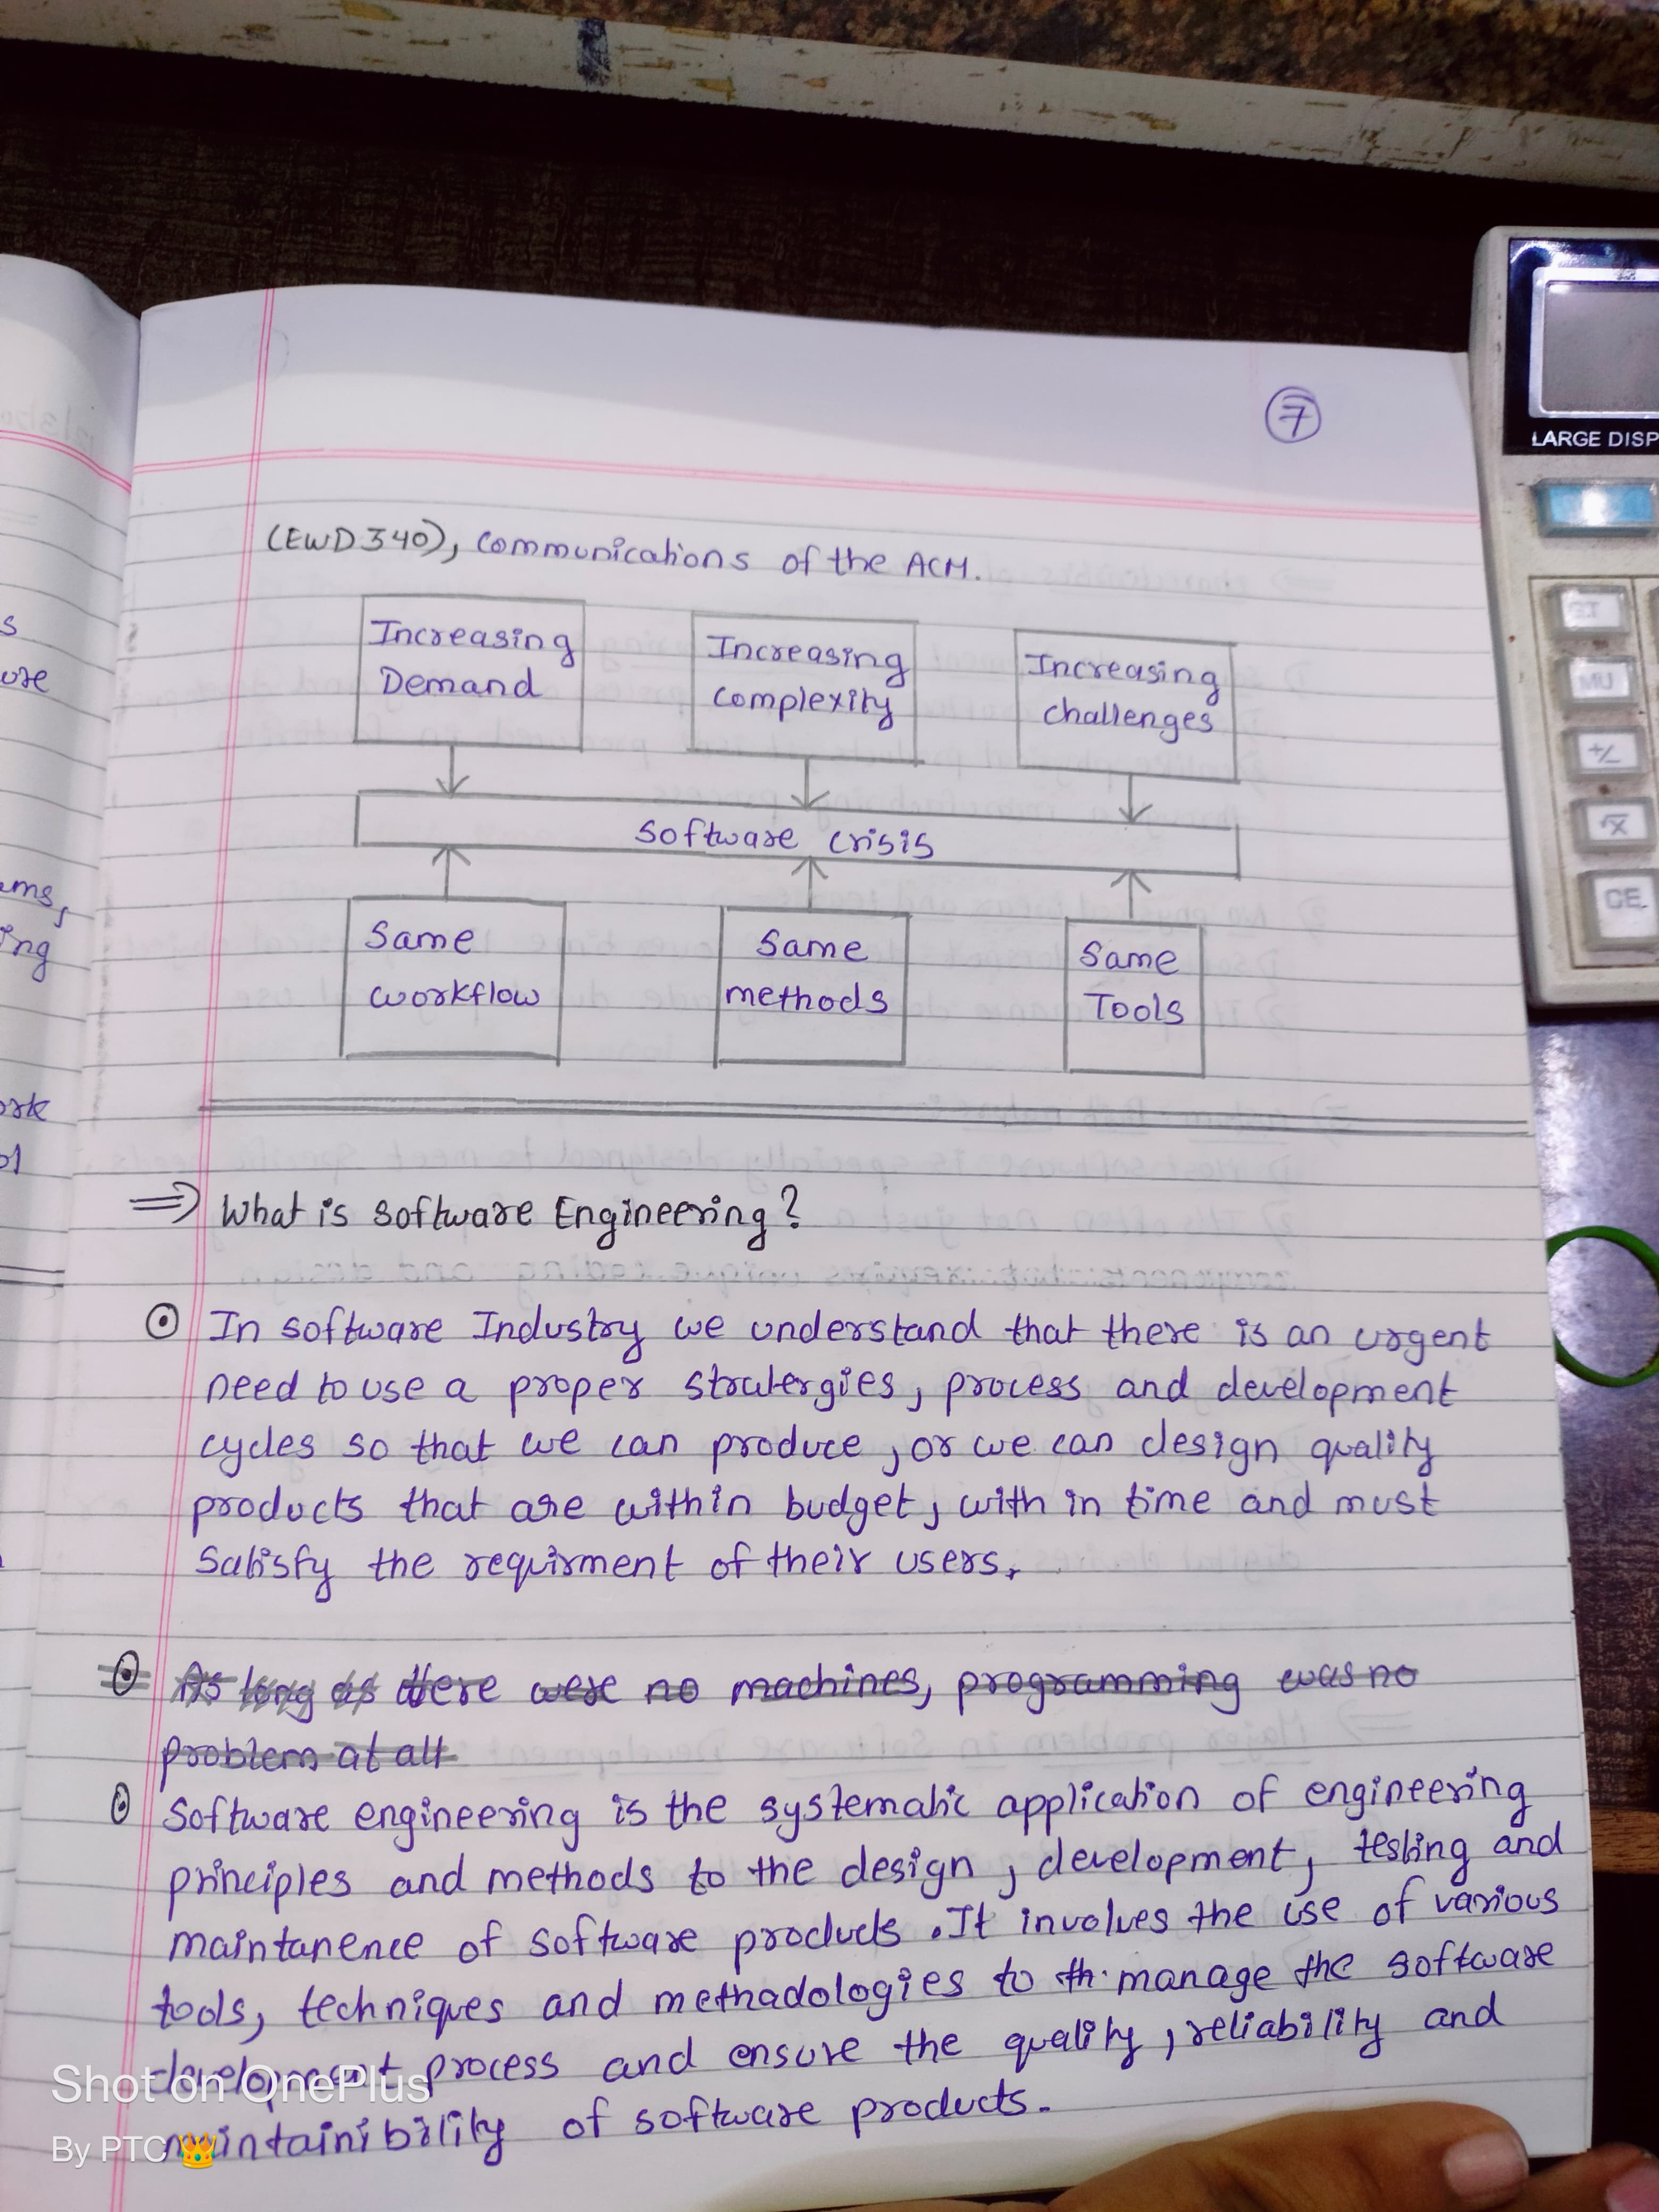 7
(EWD340), Communications of the ACM.
Increasing
Demand
Increasing
Complexity
Increasing
challenges
Software Crisis
Same
workflow
Same
methods
Same
Tools
=> What is Software Engineering?
In software Industry we understand that there is an urgent
need to use a proper stratergies, process and development
cycles so that we can produce, or we can design quality
products that are within budget, with in time and must
Satisfy the requirment of their users.
As long as there were no machines, programming was no
problem at all
Software engineering is the systematic application of engineering
principles and methods to the design, development, testing and
maintanence of software products. It involves the use of various
tools, techniques and methadologies to th. manage the software
development process and ensure the quality, reliability and
maintainibility of software products.
s
ure
ems,
ing
ork
ol
LARGE DISP
GT
MU
+/-
√X
CE
Shot on OnePlus
By PTC